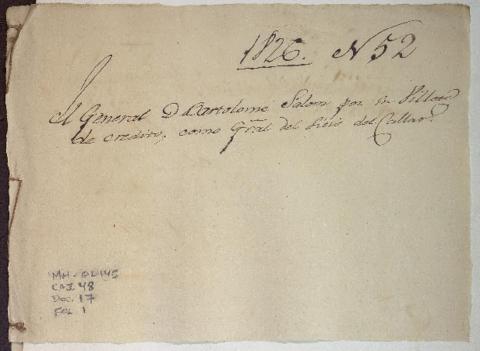 1826. N 52
El General D Bartolome Salom por un Pillete
de credito, como Gral del Sitio del Callao.
MH-OL145
CAJ 48
Doc. 17
FOL 1